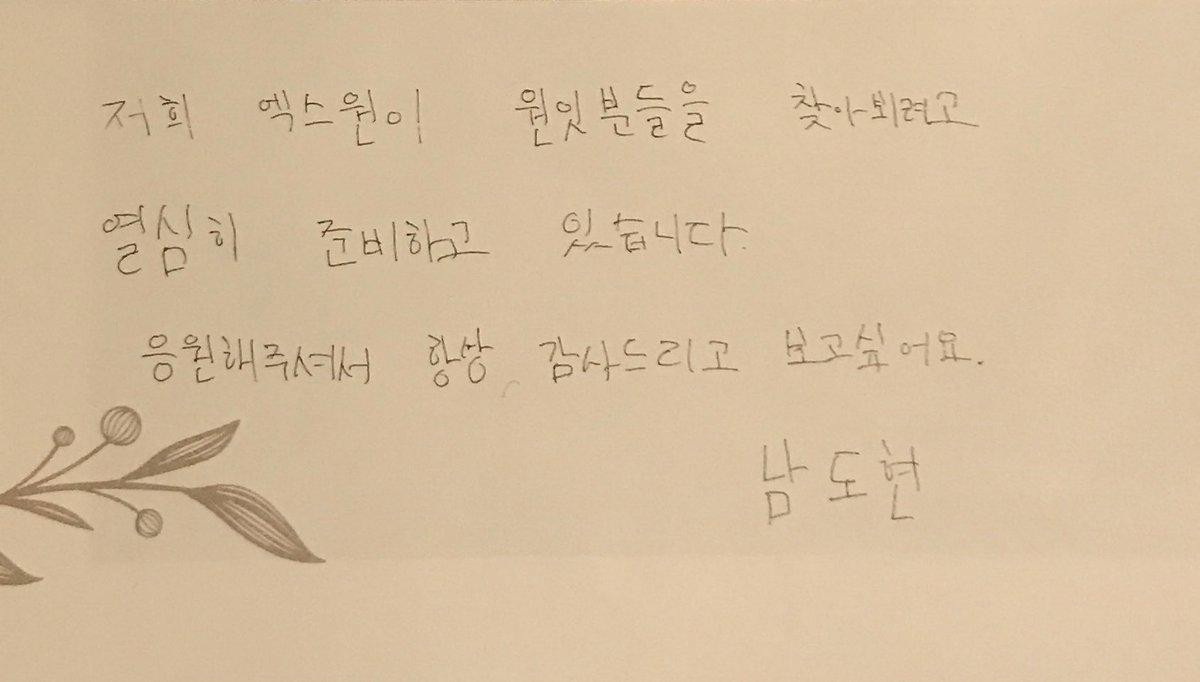 저희 엑스원이 원잇분들을 찾아뵈려고
열심히 준비하고 있습니다.
응원해주셔서 항상 감사드리고 보고싶어요.
남도현